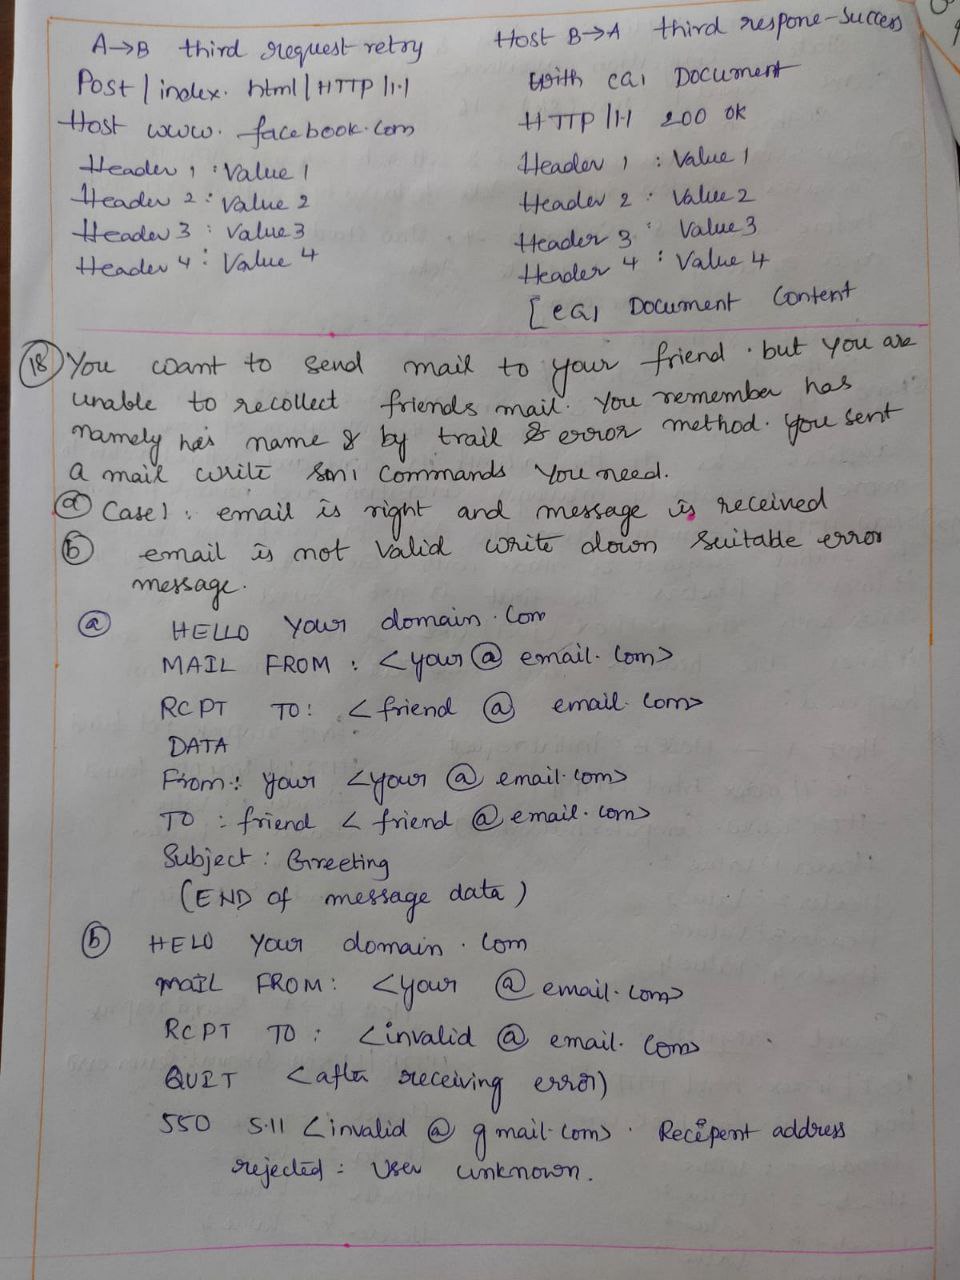 A→B third request retry
Post / index. html / HTTP /1.1
Host www. facebook.com
Header 1 : Value 1
Header 2 : Value 2
Header 3 : Value3
Header 4 : Value 4
Host B→A third respone-Success
With ca1 Document
HTTP /1.1 200 ok
Header 1 : Value 1
Header 2 : Value 2
Header 3 : Value3
Header 4 : Value 4
[ca1 Document Content
18 You want to send mail to your friend. but you are
unable to recollect friends mail. You remember has
namely his name & by trail & error method. you sent
a mail write sm1 commands You need.
a Case1 : email is right and message is received
b email is not valid write down suitable error
message.
a HELLO your domain.com
MAIL FROM : <your@ email.com>
RCPT TO: <friend @ email.com>
DATA
From: your <your @ email.com>
TO : friend < friend @ email.com>
Subject : Greeting
(END of message data)
b HELO your domain . com
MAIL FROM: <your @ email.com>
RCPT TO : <invalid @ email.com>
QUIT <after receiving error)
550 5.11 <invalid @ gmail.com> . Recipent address
rejected : User unknown.